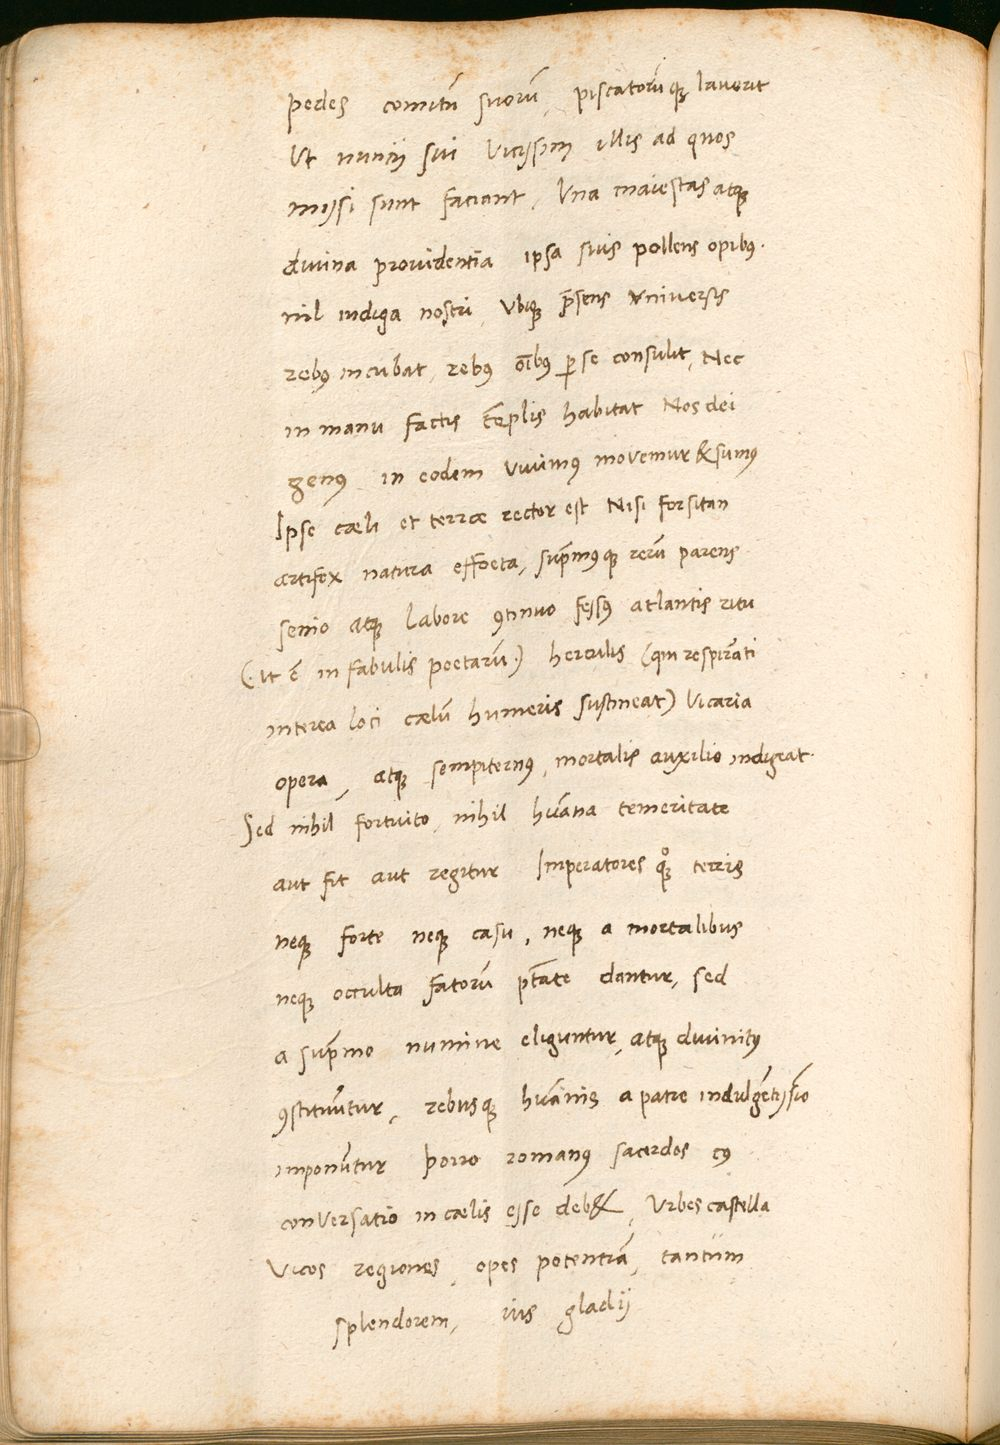 pedes comitū suorū, piscatorūq; lauerit
Ut nuncij sui Vicissim illis ad quos
missi sunt faciant, Una maiestas atq;
diuina providentia ipsa suis pollens opibꝰ.
nil indiga nostri, Vbiq; p̄sens vniversis
rebꝰ incubat, rebꝰ oībꝰ ꝑ se consulit, Nec
in manu factis tēplis habitat Nos dei
genꝰ in eodem vivimꝰ movemur & sumꝰ
Ipse cæli et terræ rector est Nisi forsitan
artifex natura effoeta, sup̄mꝰq; rerū parens
senio atq; labore ꝯtinuo fessꝰ atlantis ritu
(.ut ē in fabulis poetarū.) herculis (qui respirāti
interea loci cælū humeris sustineat) Vicaria
opera, atq; sempiternꝰ, mortalis auxilio indigeat.
Sed nihil fortuito, nihil huāna temeritate
aut fit aut regitur Imperatores qͦq; terris
neq; forte neq; casu, neq; a mortalibus
neq; occulta fatorū ptāte dantur, sed
a sup̄mo numine eliguntur, atq; divinitꝰ
ꝯstituūtur, rebusq; huānis a patre indulgētissīo
imponūtur porro romanꝰ sacerdos cꝰ
conversatio in cælis esse deb&, Urbes castella
Vicos regiones, opes potentiā, tantum
splendorem, ius gladij